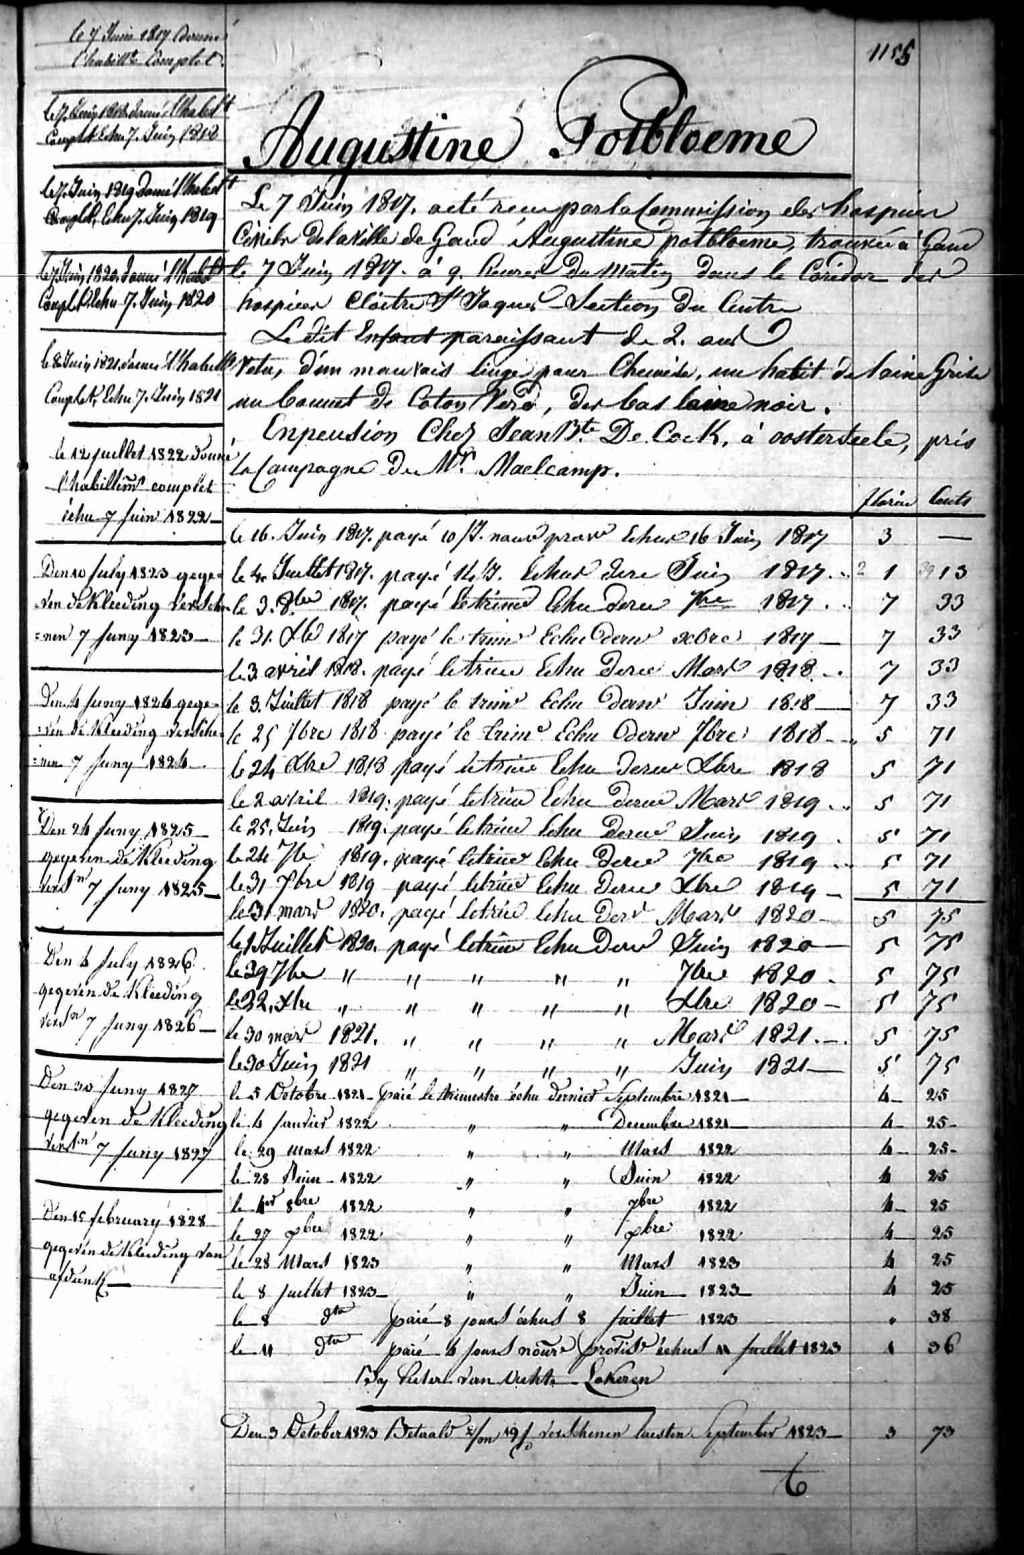 1155
le 7 Juin 1817 Donné
l'habillt Complet
le 7 Juin 1818 donné l'habilt
Complet Echu 7 Juin 1818
le 7 Juin 1819 donné l'habilt
Complet, Echu 7 Juin 1819
le 7 Juin 1820 donné l'habilt
Complet Echu 7 Juin 1820
le 8 Juin 1821 donné l'habille
Complet, Echu 7 Juin 1821
le 12 juillet 1822 donné
l'habillem complet
échu 7 Juin 1822
Den 10 July 1823 gege-
ven de Kleeding versche-
=nen 7 Juny 1823
Den 4 Juny 1824 gege-
ven de Kleeding versche-
=nen 7 Juny 1824
Den 24 Juny 1825
gegeven de Kleeding
versn 7 Juny 1825
Den 4 July 1826
gegeven de Kleeding
versn 7 Juny 1826
Den 30 Juny 1827
gegeven de Kleeding
versn 7 Juny 1827
Den 15 february 1828
gegeven de Kleeding van
afdank
Augustine Potbloeme
Le 7 Juin 1817. a été recue par la Commission des hospices
Civils de la ville de Gand Augustine potbloeme, trouvée à Gand
le 7 Juin 1817. à 9. heures du matin dans le Coridor des
hospices Cloitre St Jaques - Section du Centre
Ledit Enfant paraissant de 2. ans
Vetu, d'un mauvais linge pour Chemise, un habit de laine Grise
un bonnet de Coton Verd, des bas laine noir.
En pension Chez Jean Bte De Cock, à oosterseele, près
la Campagne de Mr Maelcamp.
florins Cents
le 16. Juin 1817. payé 10 J. nour provr Echus 16 Juin 1817 3 —
le 4. Juillet 1817. payé 14 J. Echus dere Juin 1817 1 13
le 3. 8bre 1817. payé le trime Echu dere 7bre 1817 7 33
le 31. Xbr 1817 payé le trimr Echu dernr xbre 1817 7 33
le 3 avril 1818. payé le trime Echu dere Mars 1818 7 33
le 3 Juillet 1818 payé le trimr Echu dernr Juin 1818 7 33
le 25 7bre 1818 payé le trime Echu dernr 7bre 1818 5 71
le 24 Xbre 1818 payé le trime Echu dernr Xbre 1818 5 71
le 2 avril 1819. payé le trime Echu derne Mars 1819 5 71
le 25. Juin 1819. payé le trime Echu derne Juin 1819 5 71
le 24 7bre 1819. payé le trime Echu dere 7bre 1819 5 71
le 31 Xbre 1819 payé le trime Echu derne Xbre 1819 5 71
le 31 mars 1820. payé le trime Echu derr Mars 1820 5 75
le 1. Juillet 1820. payé le trime Echu derr Juin 1820 5 75
le 29 7bre " " " " " 7bre 1820 5 75
le 22. Xbre " " " " " Xbre 1820 5 75
le 30 mars 1821. " " " " Mars 1821 5 75
le 30 Juin 1821 " " " " Juin 1821 5 75
le 5 Octobre 1821 paié le trimestre échu dernier Septembre 1821 4 25
le 4 Janvier 1822 " " Decembre 1821 4 25
le 29 mars 1822 " " Mars 1822 4 25
le 28 Juin 1822 " " Juin 1822 4 25
le 1er 8bre 1822 " " 7bre 1822 4 25
le 27 xbre 1822 " " xbre 1822 4 25
le 28 Mars 1823 " " Mars 1823 4 25
le 8 juillet 1823 " " Juin 1823 4 25
le 8 dto paié 8 jours échus 8 juillet 1823 " 38
le 11 dto paié 4 jours nourre provisre échus 11 juillet 1823 1 36
Bij Pieter van Lokeren
Den 3 October 1823 Betaald verschenen laesten September 1823 3 73